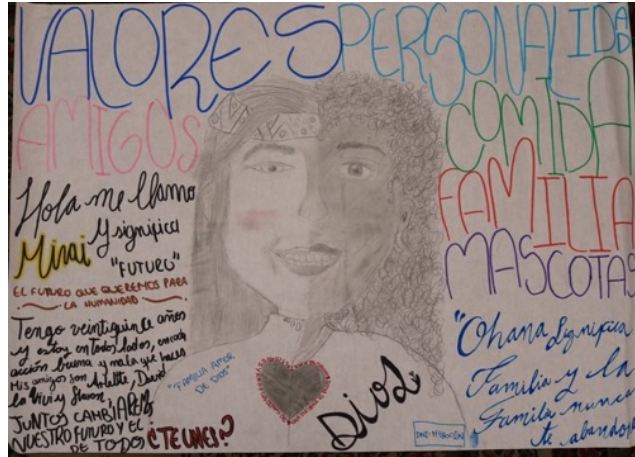 VALORES
PERSONALIDAD
AMIGOS
COMIDA
FAMILIA
MASCOTAS
Hola me llamo
Mirai y significa
"FUTURO"
EL FUTURO QUE QUEREMOS PARA
LA HUMANIDAD
Tengo veintiquince años
y estoy en todos lados, en cada
acción buena y mala que haces
Mis amigos son Arlette, David
la Vivi y
JUNTOS CAMBIAREMOS
NUESTRO FUTURO Y EL
DE TODOS ¿TE UNES?
"FAMILIA AMOR
DE DIOS"
Dios
"Ohana significa
Familia y la
Familia nunca
te abandona